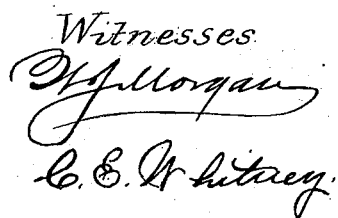 Witnesses
W J Morgan
C. E. Whitney.